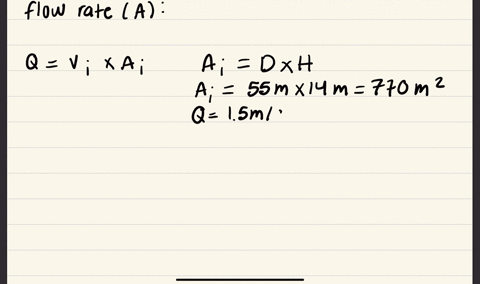 flow rate (A):
Q = V i × A i A i = D × H
A i = 55 m × 14 m = 770 m²
Q = 1.5 m/